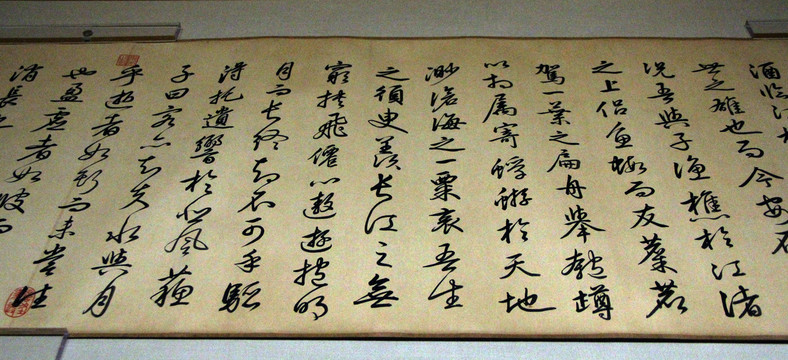 酒临江
世之雄也而今安在
况吾與子渔樵於江渚
之上侣鱼蝦而友麋鹿
駕一葉之扁舟舉匏樽
以相属寄蜉蝣於天地
渺滄海之一粟哀吾生
之須臾羨長江之無
窮挟飛僊以遨遊抱明
月而長终知不可乎驟
得托遺響於悲風蘇
子曰客亦知夫水與月
乎逝者如斯而未嘗往
也盈虚者如彼而
消長也